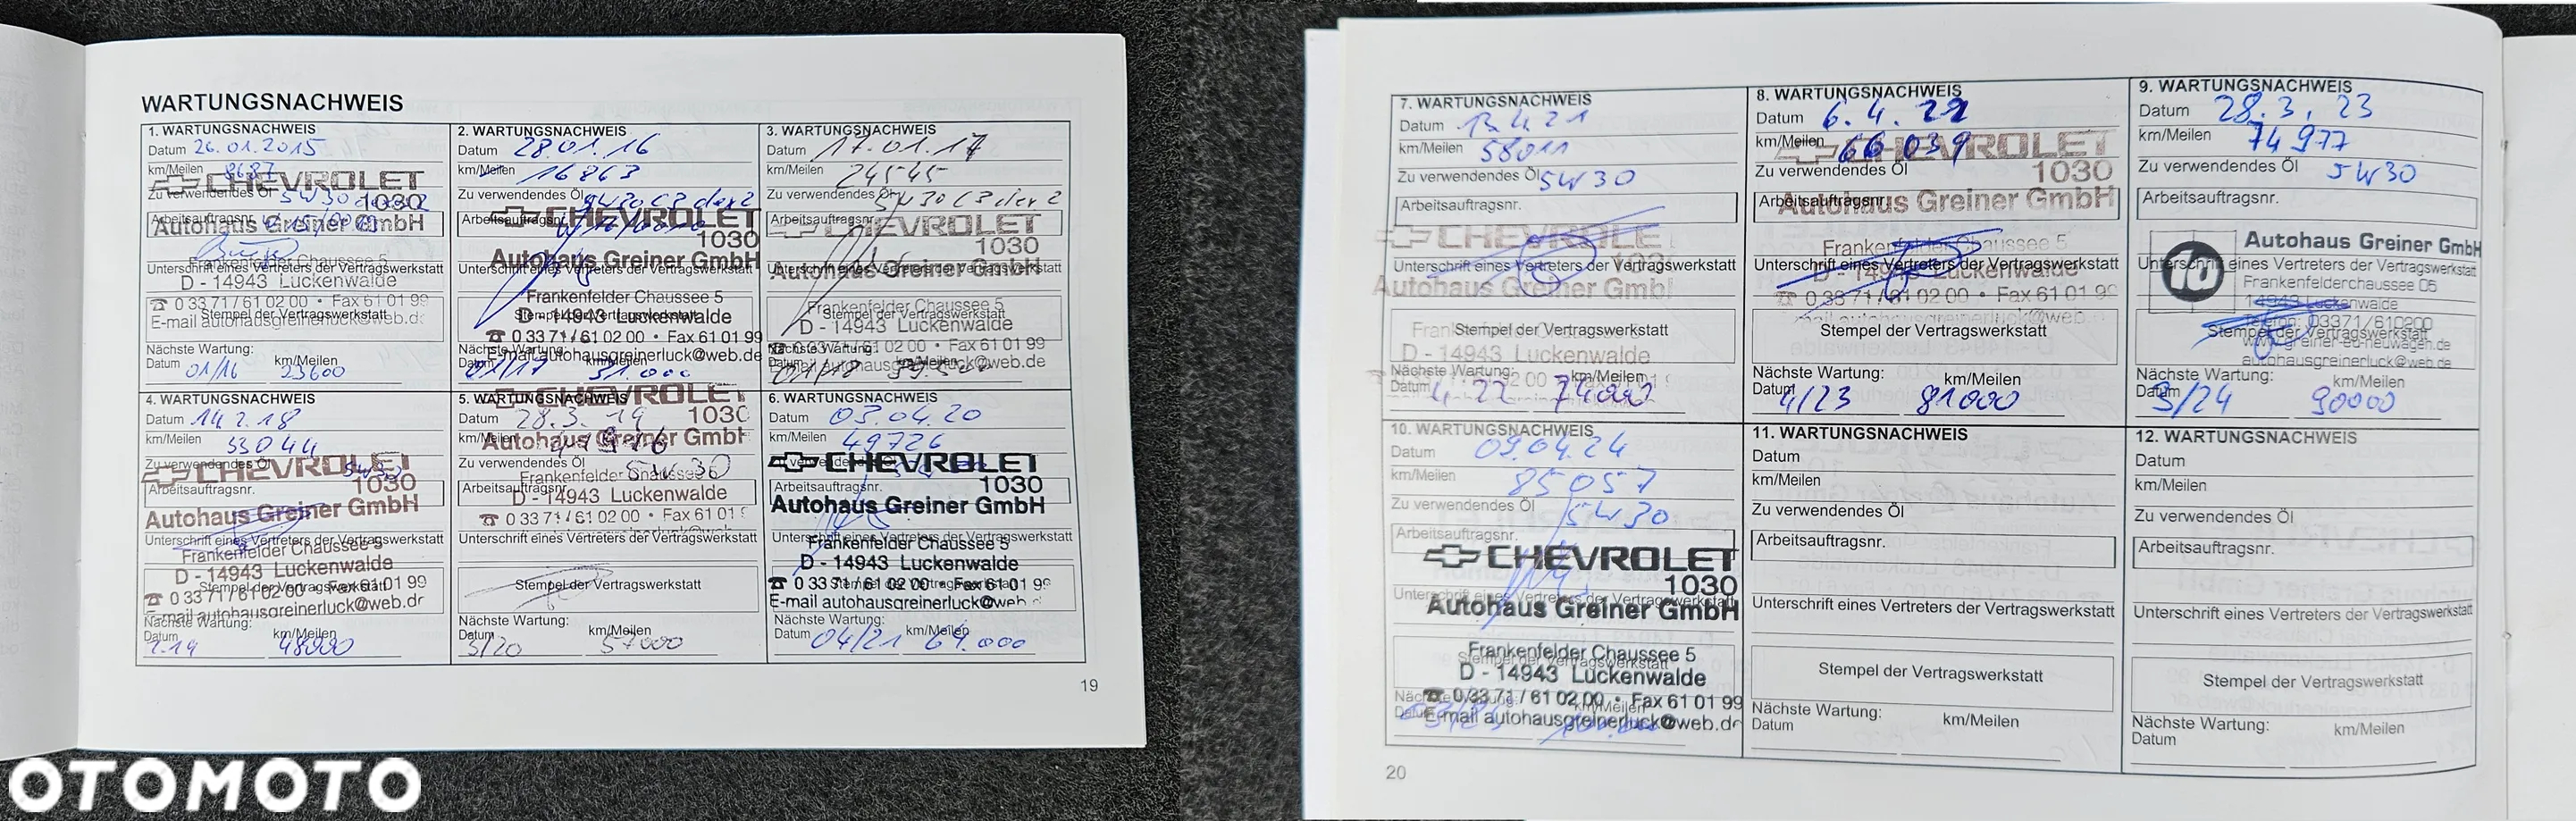 WARTUNGSNACHWEIS
1. WARTUNGSNACHWEIS
Datum 26.01.2015
km/Meilen 8687
CHEVROLET
Zu verwendendes Öl 5W30
1030
Arbeitsauftragsnr.
Autohaus Greiner GmbH
Frankenfelder Chaussee 5
Unterschrift eines Vertreters der Vertragswerkstatt
D - 14943 Luckenwalde
☎ 0 33 71 / 61 02 00 • Fax 61 01 99
Stempel der Vertragswerkstatt
E-mail autohausgreinerluck@web.de
Nächste Wartung:
Datum 01/16 km/Meilen 23600
2. WARTUNGSNACHWEIS
Datum 28.01.16
km/Meilen 16863
Zu verwendendes Öl 5W30 C3 dex2
CHEVROLET
Arbeitsauftragsnr.
1030
Autohaus Greiner GmbH
Unterschrift eines Vertreters der Vertragswerkstatt
Frankenfelder Chaussee 5
Stempel der Vertragswerkstatt
D - 14943 Luckenwalde
☎ 0 33 71 / 61 02 00 • Fax 61 01 99
Nächste Wartung:
E-mail autohausgreinerluck@web.de
Datum 01/17 km/Meilen 31.000
3. WARTUNGSNACHWEIS
Datum 17.01.17
km/Meilen 24545
Zu verwendendes Öl 5W30 C3 dex2
Arbeitsauftragsnr.
CHEVROLET
1030
Autohaus Greiner GmbH
Unterschrift eines Vertreters der Vertragswerkstatt
Frankenfelder Chaussee 5
Stempel der Vertragswerkstatt
D - 14943 Luckenwalde
☎ 0 33 71 / 61 02 00 • Fax 61 01 99
Nächste Wartung:
E-mail autohausgreinerluck@web.de
Datum 01/18 km/Meilen
4. WARTUNGSNACHWEIS
Datum 14.2.18
km/Meilen 33044
Zu verwendendes Öl 5W30
CHEVROLET
1030
Arbeitsauftragsnr.
Autohaus Greiner GmbH
Unterschrift eines Vertreters der Vertragswerkstatt
Frankenfelder Chaussee 5
D - 14943 Luckenwalde
Stempel der Vertragswerkstatt
☎ 0 33 71 / 61 02 00 • Fax 61 01 99
E-mail autohausgreinerluck@web.de
Nächste Wartung:
Datum 2.19 km/Meilen 48000
5. WARTUNGSNACHWEIS
CHEVROLET
Datum 28.3.19
1030
km/Meilen
Autohaus Greiner GmbH
Zu verwendendes Öl 5W30
Frankenfelder Chaussee 5
Arbeitsauftragsnr.
D - 14943 Luckenwalde
☎ 0 33 71 / 61 02 00 • Fax 61 01 9
Unterschrift eines Vertreters der Vertragswerkstatt
Stempel der Vertragswerkstatt
Nächste Wartung:
Datum 3/20 km/Meilen 57000
6. WARTUNGSNACHWEIS
Datum 03.04.20
km/Meilen 49726
Zu verwendendes Öl
CHEVROLET
1030
Arbeitsauftragsnr.
Autohaus Greiner GmbH
Unterschrift eines Vertreters der Vertragswerkstatt
Frankenfelder Chaussee 5
D - 14943 Luckenwalde
☎ 0 33 71 / 61 02 00 • Fax 61 01 99
Stempel der Vertragswerkstatt
E-mail autohausgreinerluck@web.de
Nächste Wartung:
Datum 04/21 km/Meilen 64.000
19
7. WARTUNGSNACHWEIS
Datum 13.4.21
km/Meilen 58011
Zu verwendendes Öl 5W30
Arbeitsauftragsnr.
CHEVROLE
Unterschrift eines Vertreters der Vertragswerkstatt
Autohaus Greiner GmbH
Stempel der Vertragswerkstatt
D - 14943 Luckenwalde
Nächste Wartung:
Datum 4.22 km/Meilen 74000
8. WARTUNGSNACHWEIS
Datum 6.4.22
km/Meilen 66039
CHEVROLET
Zu verwendendes Öl
1030
Arbeitsauftragsnr.
Autohaus Greiner GmbH
Frankenfelder Chaussee 5
Unterschrift eines Vertreters der Vertragswerkstatt
D - 14943 Luckenwalde
☎ 0 33 71 / 61 02 00 • Fax 61 01 99
Stempel der Vertragswerkstatt
Nächste Wartung:
Datum 4/23 km/Meilen 81000
9. WARTUNGSNACHWEIS
Datum 28.3.23
km/Meilen 74977
Zu verwendendes Öl 5W30
Arbeitsauftragsnr.
Autohaus Greiner GmbH
Unterschrift eines Vertreters der Vertragswerkstatt
Frankenfelderchaussee 05
14943 Luckenwalde
Telefon: 03371/610200
Stempel der Vertragswerkstatt
www.greiner-eu-neuwagen.de
autohausgreinerluck@web.de
Nächste Wartung:
Datum 3/24 km/Meilen 90000
10. WARTUNGSNACHWEIS
Datum 09.04.24
km/Meilen 85057
Zu verwendendes Öl 5W30
Arbeitsauftragsnr.
CHEVROLET
1030
Unterschrift eines Vertreters der Vertragswerkstatt
Autohaus Greiner GmbH
Frankenfelder Chaussee 5
Stempel der Vertragswerkstatt
D - 14943 Luckenwalde
Nächste Wartung:
☎ 0 33 71 / 61 02 00 • Fax 61 01 99
Datum km/Meilen
E-mail autohausgreinerluck@web.de
11. WARTUNGSNACHWEIS
Datum
km/Meilen
Zu verwendendes Öl
Arbeitsauftragsnr.
Unterschrift eines Vertreters der Vertragswerkstatt
Stempel der Vertragswerkstatt
Nächste Wartung:
Datum km/Meilen
12. WARTUNGSNACHWEIS
Datum
km/Meilen
Zu verwendendes Öl
Arbeitsauftragsnr.
Unterschrift eines Vertreters der Vertragswerkstatt
Stempel der Vertragswerkstatt
Nächste Wartung:
Datum km/Meilen
20
OTOMOTO